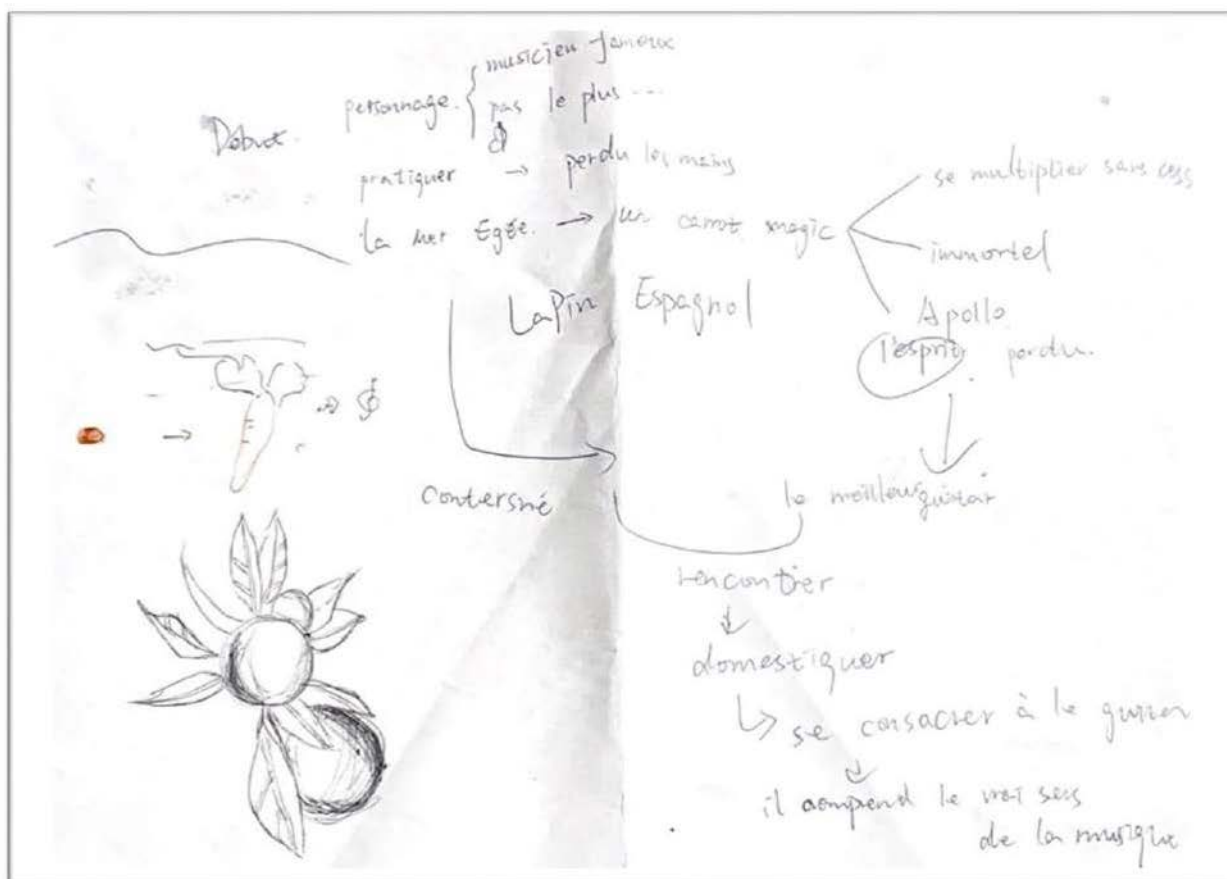 Début.
personnage.
musicien fameux
pas le plus ...
pratiquer → perdu les mains
la mer Egée. → un carrot magic
se multiplier sans cess
immortel
Apollo
l'esprit perdu.
LaPin Espagnol
le meilleur guitar
rencontrer
domestiquer
se consacrer à le
il comprend le vrai sess
de la musique